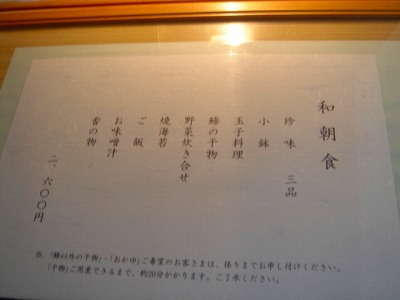 和朝食
珍味 三品
小鉢
玉子料理
鯵の干物
野菜炊き合せ
焼海苔
ご飯
お味噌汁
香の物
二、六〇〇円
※．「鯵以外の干物」・「おかゆ」ご希望のお客さまは、係りまでお申し付けください。
「干物」ご用意できるまで、約20分かかります。ご了承ください。